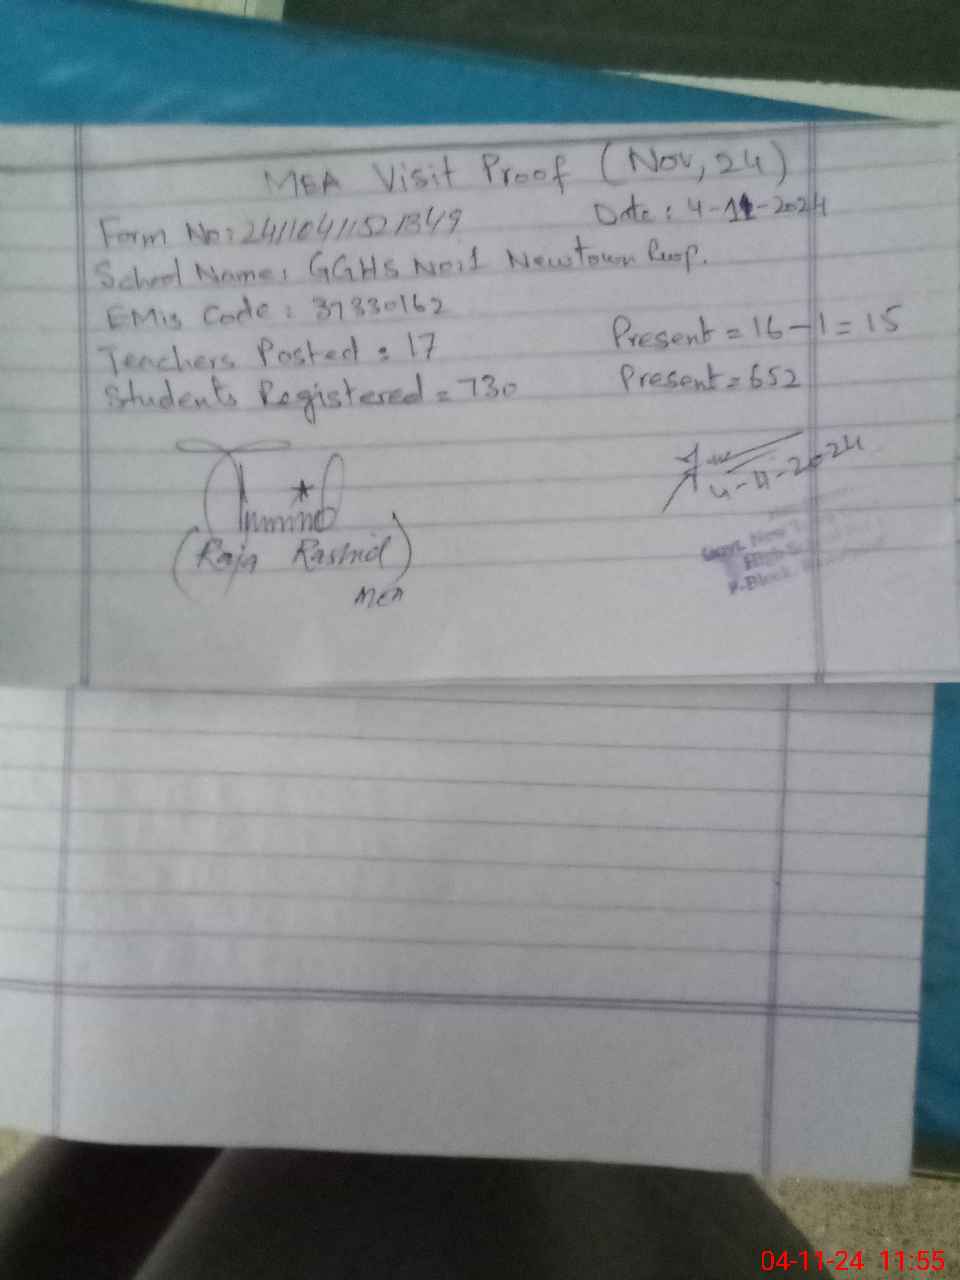 MEA Visit Proof (Nov, 24)
Form No: 2411041152 1349
Date: 4-11-2024
School Name: GGHS No:1 Newtown
EMis Code: 37330162
Teachers Posted = 17
Present = 16-1 = 15
Students Registered = 730
Present = 652
4-11-2024
(Raja Rashid)
MEA
Govt. New
High S
-Block
04-11-24 11:55